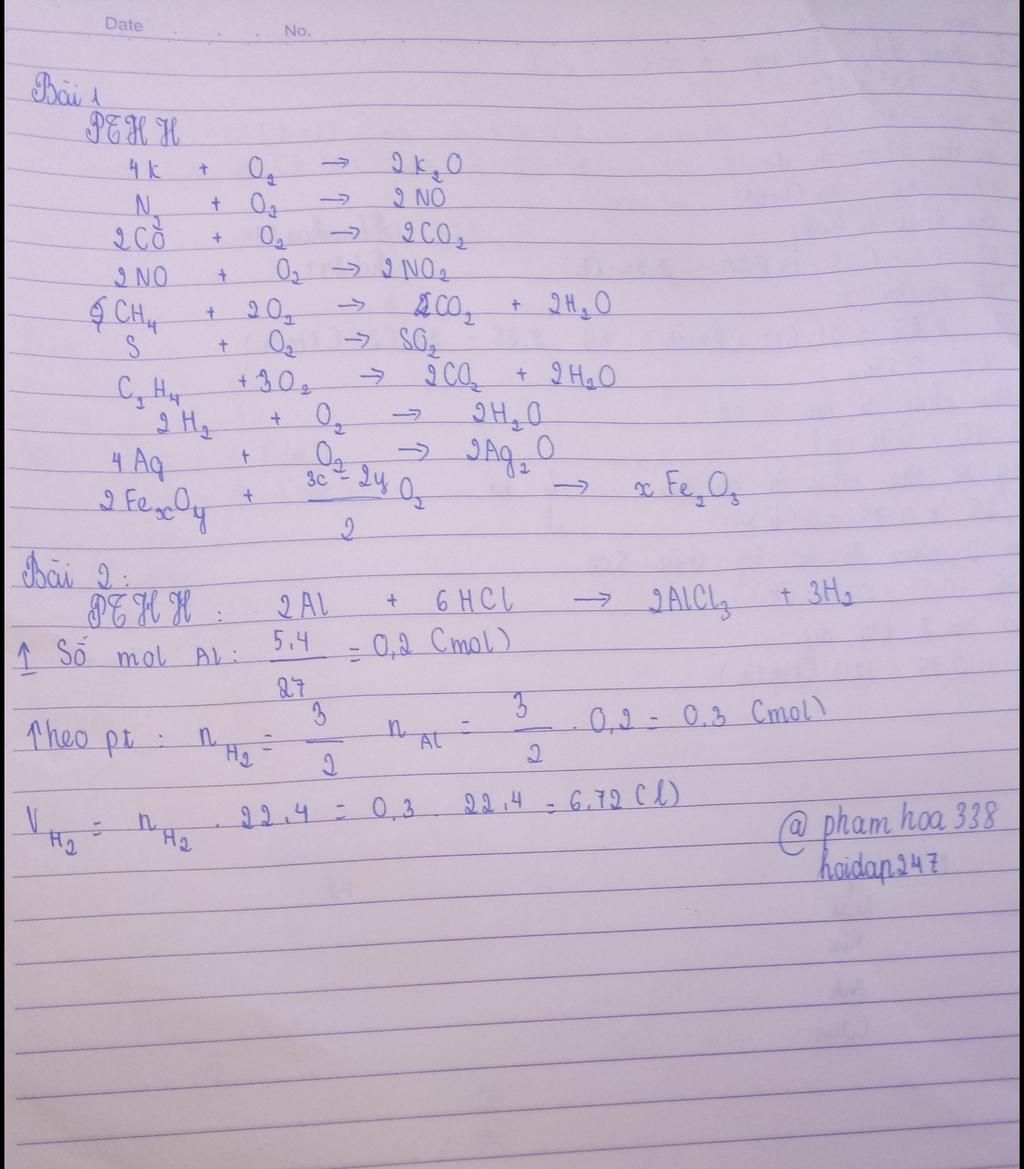 Date . . . No.
Bài 1
PTHH
4K + O₂ → 2K₂O
N₂ + O₂ → 2NO
2CO + O₂ → 2CO₂
2NO + O₂ → 2NO₂
CH₄ + 2O₂ → CO₂ + 2H₂O
S + O₂ → SO₂
C₂H₄ + 3O₂ → 2CO₂ + 2H₂O
2H₂ + O₂ → 2H₂O
4Ag + O₂ → 2Ag₂O
2FexOy + (3x - 2y)/2 O₂ → x Fe₂O₃
Bài 2:
PTHH: 2Al + 6HCl → 2AlCl₃ + 3H₂
↑ Số mol Al: 5.4/27 = 0,2 (mol)
Theo pt: n H₂ = 3/2 n Al = 3/2 . 0,2 = 0.3 (mol)
V H₂ = n H₂ . 22.4 = 0,3 . 22.4 = 6.72 (l)
@phamhoa338
hoidap247